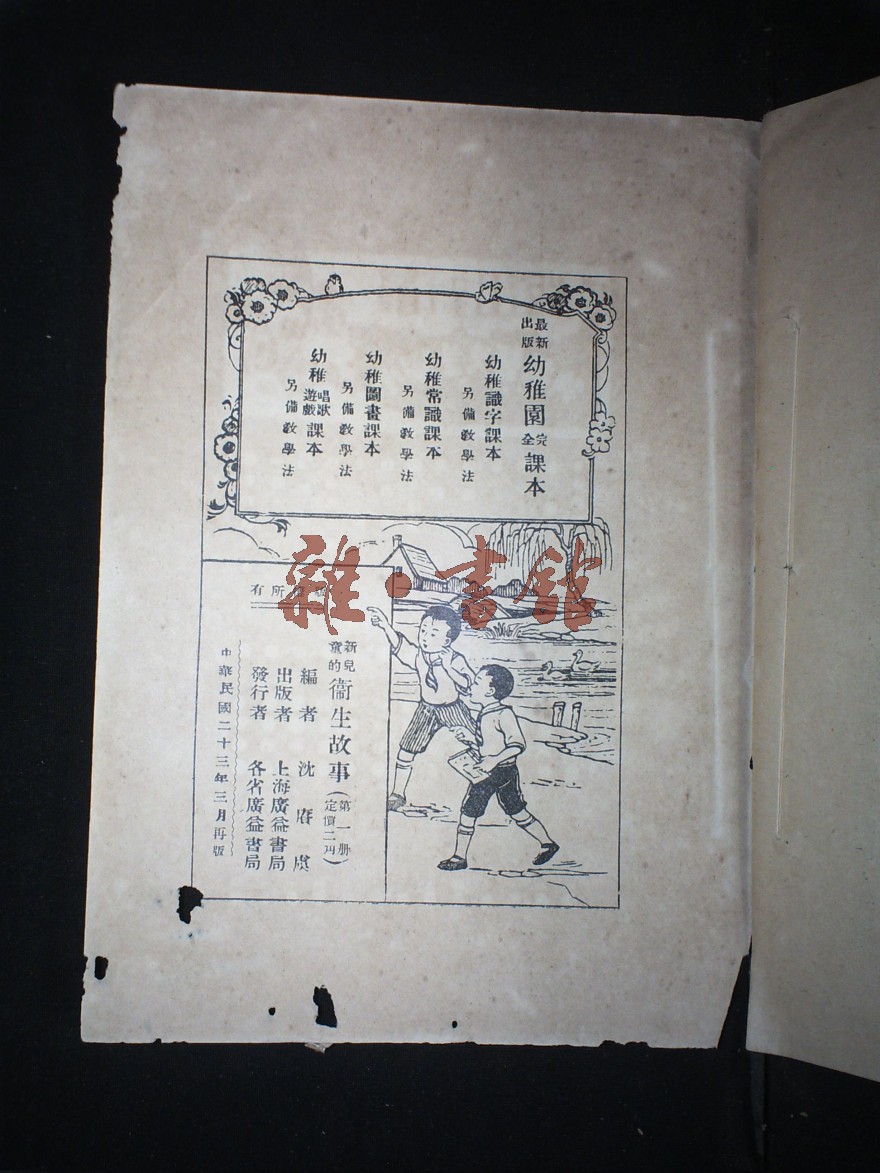 最新出版 幼稚園 完全 課本
幼稚識字課本
另備教學法
幼稚常識課本
另備教學法
幼稚圖畫課本
另備教學法
幼稚唱歌遊戲課本
另備教學法
雜·書館
有所
新兒童的 衞生故事 (第一册 定價二角)
編者 沈
出版者 上海廣益書局
發行者 各省廣益書局
中華民國二十三年三月再版